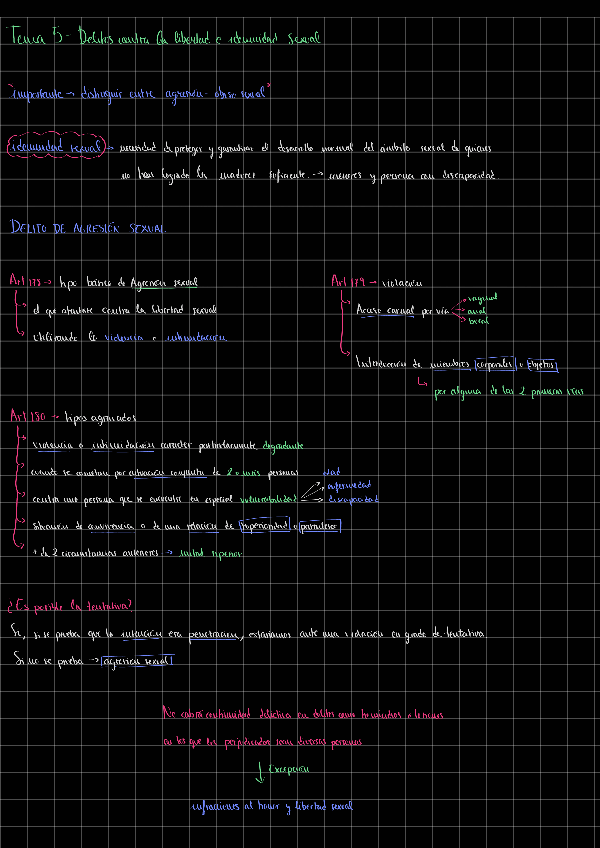 Tema 5 - Delitos contra la libertad e idemnidad sexual
"importante → distinguir entre agresión - abuso sexual"
idemnidad sexual → necesidad de proteger y garantizar el desarrollo normal del ámbito sexual de quienes
no han logrado la madurez suficiente. → menores y persona con discapacidad.
DELITO DE AGRESIÓN SEXUAL.
Art 178 → tipo básico de Agresión sexual
el que atentare contra la libertad sexual
utilizando la violencia o intimidación
Art 179 → violación
Acceso carnal por vía
vaginal
anal
bucal
Introducción de miembros corporales u objetos
por alguna de las 2 primeras vías
Art 180 → tipos agravados
violencia o intimidación carácter particularmente degradante
cuando se cometan por actuación conjunta de 2 o más personas
contra una persona que se encuentre en especial vulnerabilidad
edad
enfermedad
discapacidad
situación de convivencia o de una relación de superioridad o parentesco
+ de 2 circunstancias anteriores → mitad superior
¿Es posible la tentativa?
Sí, si se prueba que la intención era penetración, estaríamos ante una violación en grado de tentativa
Si no se prueba → agresión sexual
No cabrá continuidad delictiva en delitos como homicidios o lesiones
en los que los perjudicados sean diversas personas
Excepción
infracciones al honor y libertad sexual